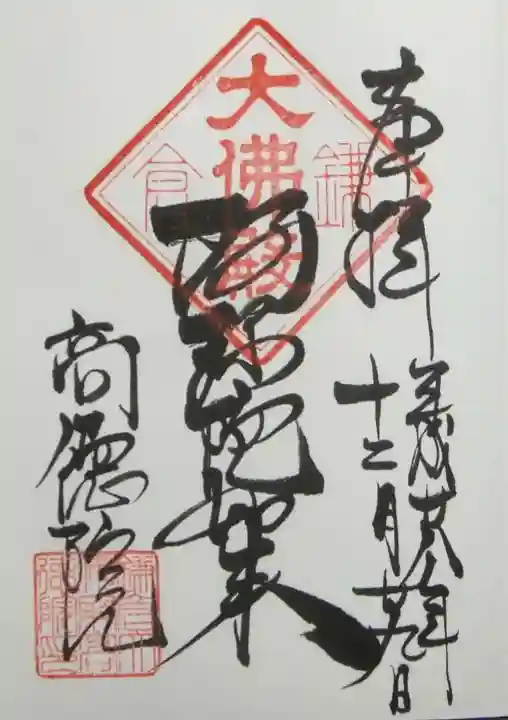 奉拝
十二月廿九日
大佛殿
鎌倉
阿弥陀如来
高徳院